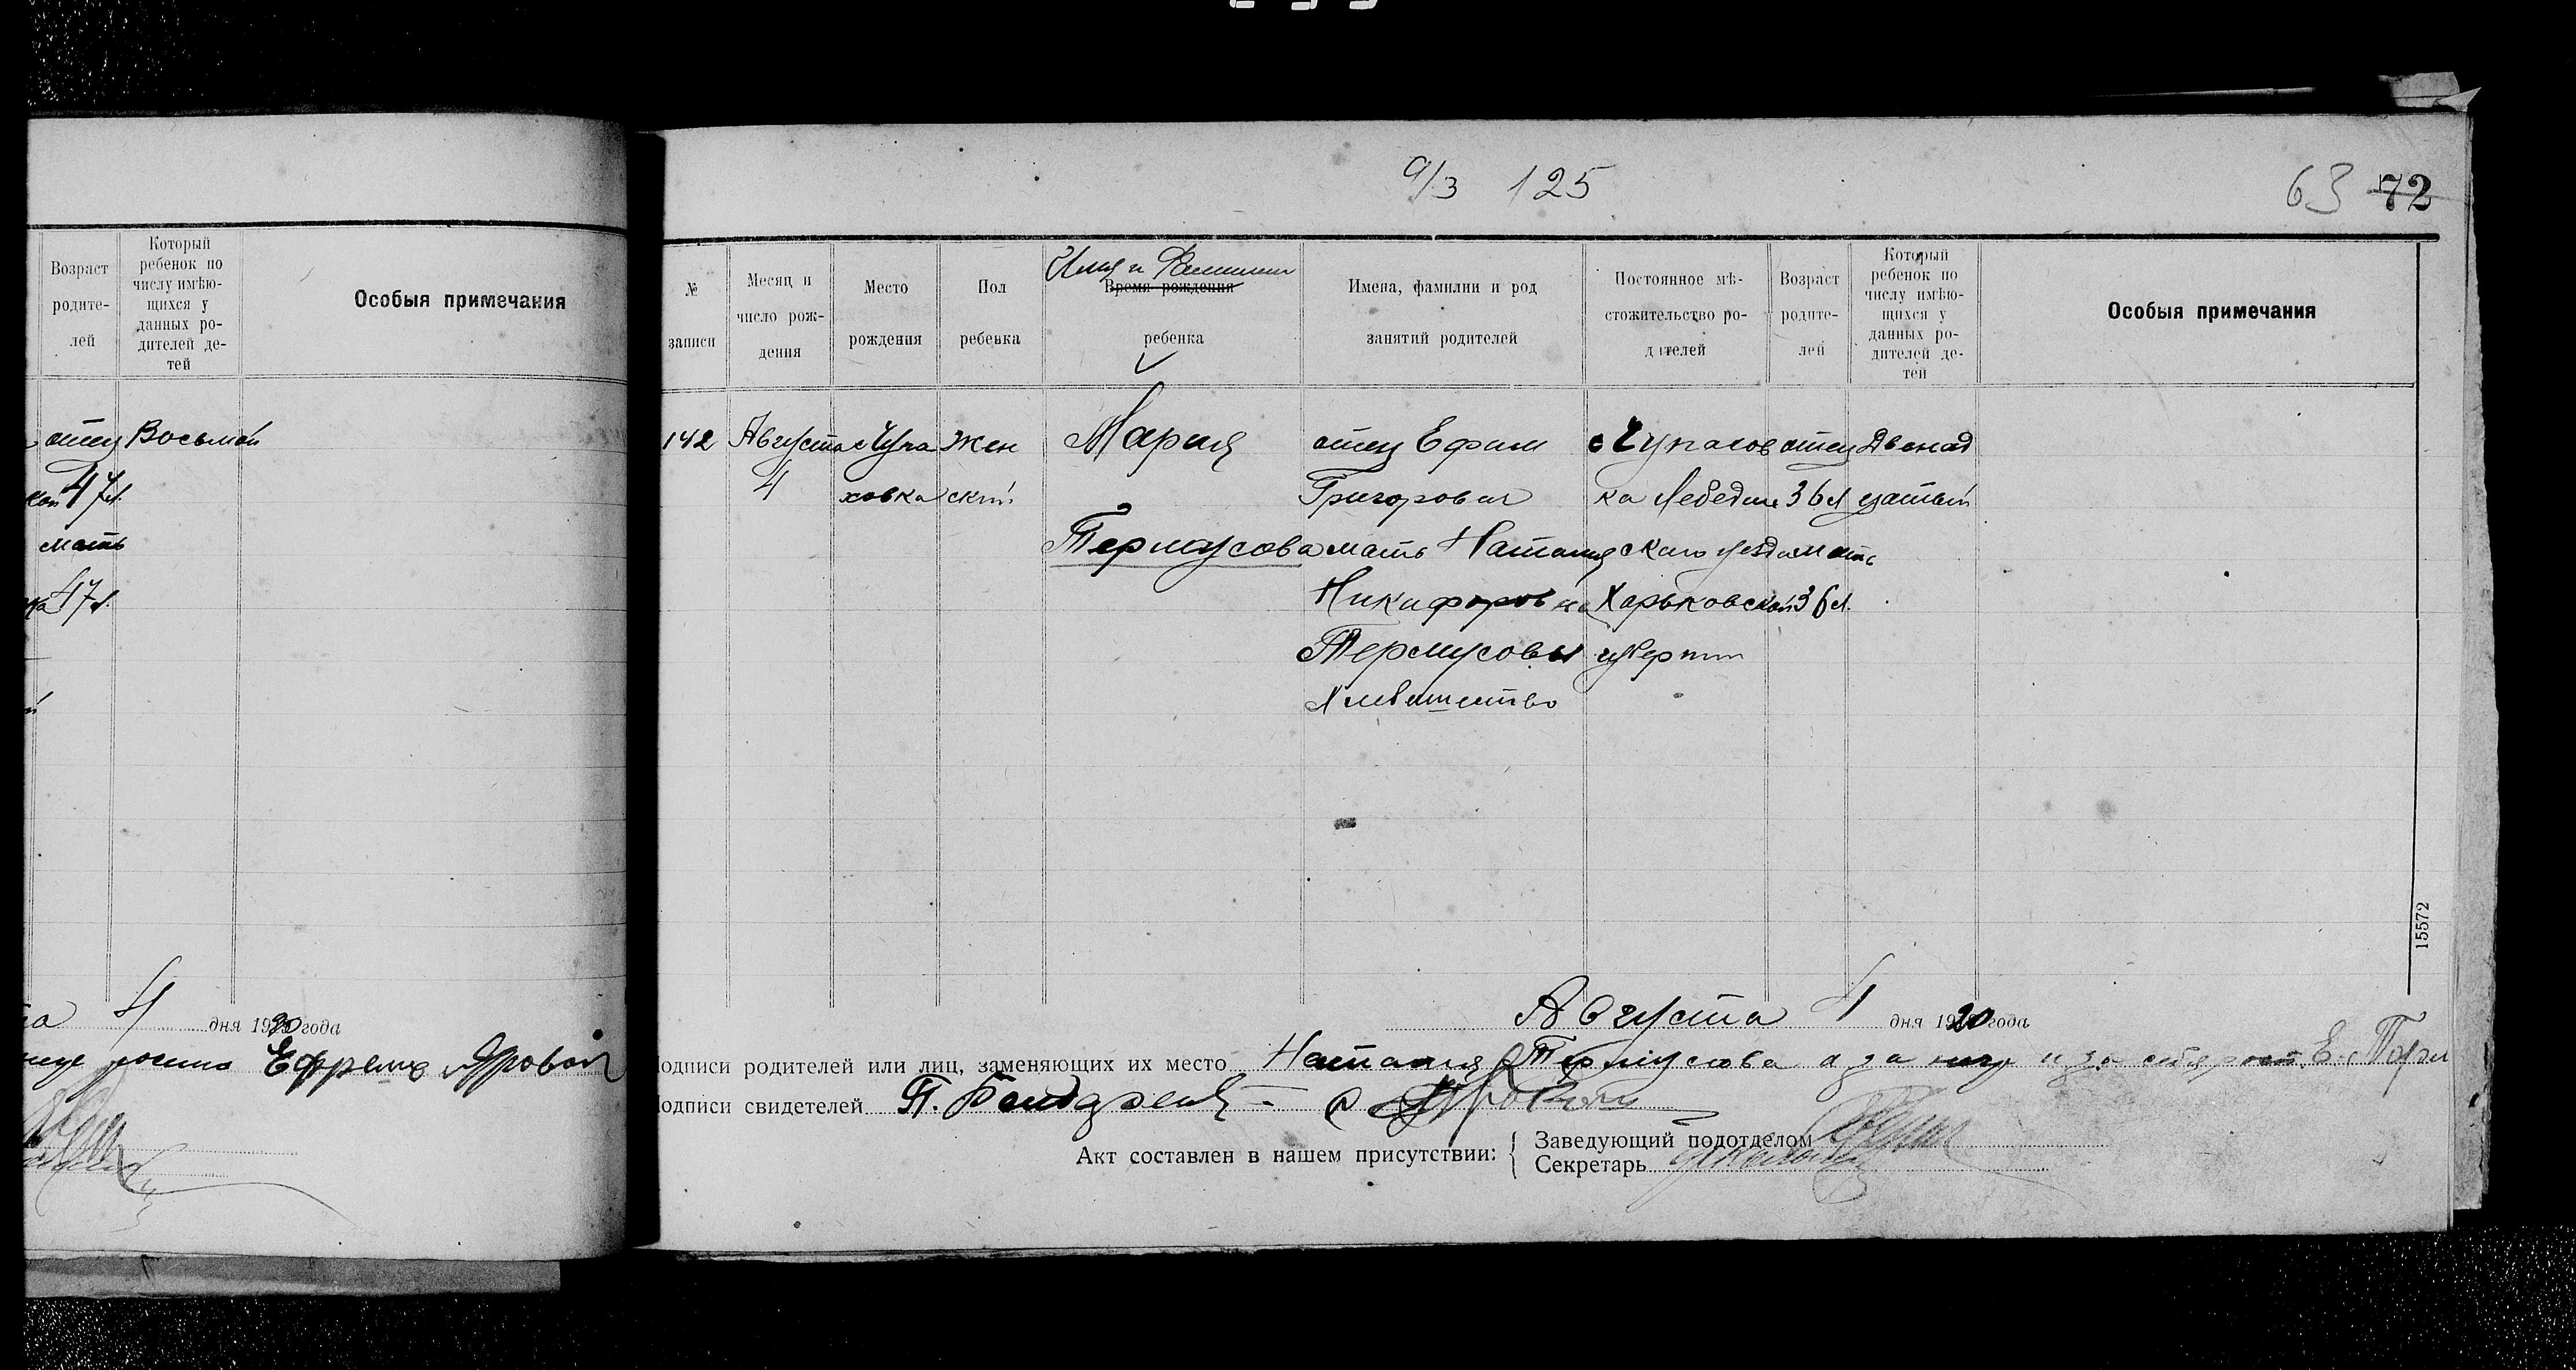 9/3 125
63 72
Возраст родите- лей
Который ребенок по числу имѣю- щихся у данных ро- дителей де- тей
Особыя примечания
отец Восьмой
47 л.
мать
47 л.
4 дня 1920 года
Ефрем Яровой
№ записи
Месяц и число рож- дения
Место рождения
Пол ребенка
Имя и Фамилия
Время рождения
ребенка
Имена, фамилии и род занятий родителей
Постоянное мѣ- стожительство ро- дителей
Возраст родите- лей
Который ребенок по числу имѣю- щихся у данных ро- дителей де- тей
Особыя примечания
142 Августа с Чупа Жен Мария отец Ефим с Чупахов отец Двенад
4 ховка ский Григорович ка Лебедин 36 л цатый
Термусова мать Наталия ского уезда мать
Никифоровна Харьковской 36 л.
Термусовы губернии
Хлебопашество
15572
Августа 4 дня 1920 года
подписи родителей или лиц, заменяющих их место Наталия Термусова а за нея и за себя
подписи свидетелей П. Бондарен
Акт составлен в нашем присутствии:
Заведующий подотделом
Секретарь